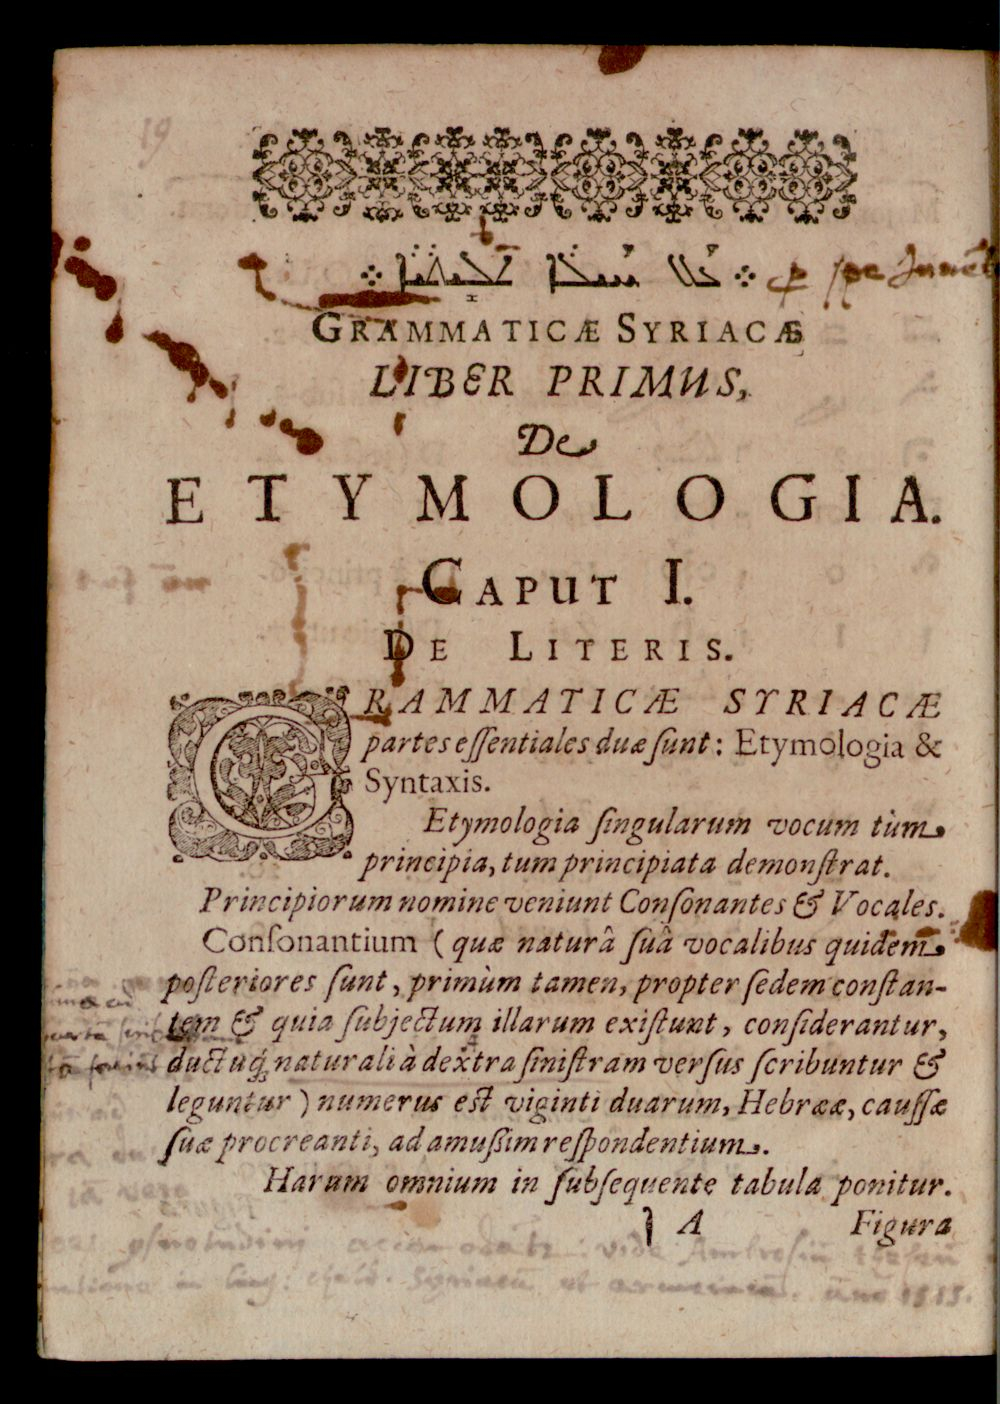 19
GRAMMATICÆ SYRIACÆ
LIBER PRIMUS,
De
ETYMOLOGIA.
CAPUT I.
DE LITERIS.
GRAMMATICÆ SYRIACÆ
partes eſſentiales duæ ſunt: Etymologia &
Syntaxis.
Etymologia ſingularum vocum tùm
principia, tum principiata demonſtrat.
Principiorum nomine veniunt Conſonantes & Vocales.
Conſonantium (quæ naturâ ſuâ vocalibus quidem
poſteriores ſunt, primùm tamen, propter ſedem conſtan-
tem & quia ſubjectum illarum exiſtunt, conſiderantur,
ductuq́; naturali à dextra ſiniſtram verſus ſcribuntur &
leguntur) numerus est viginti duarum, Hebrææ, cauſſæ
ſuæ procreanti, ad amuſſim reſpondentium.
Harum omnium in ſubſequente tabula ponitur.
A Figura
vide Ambrosiū